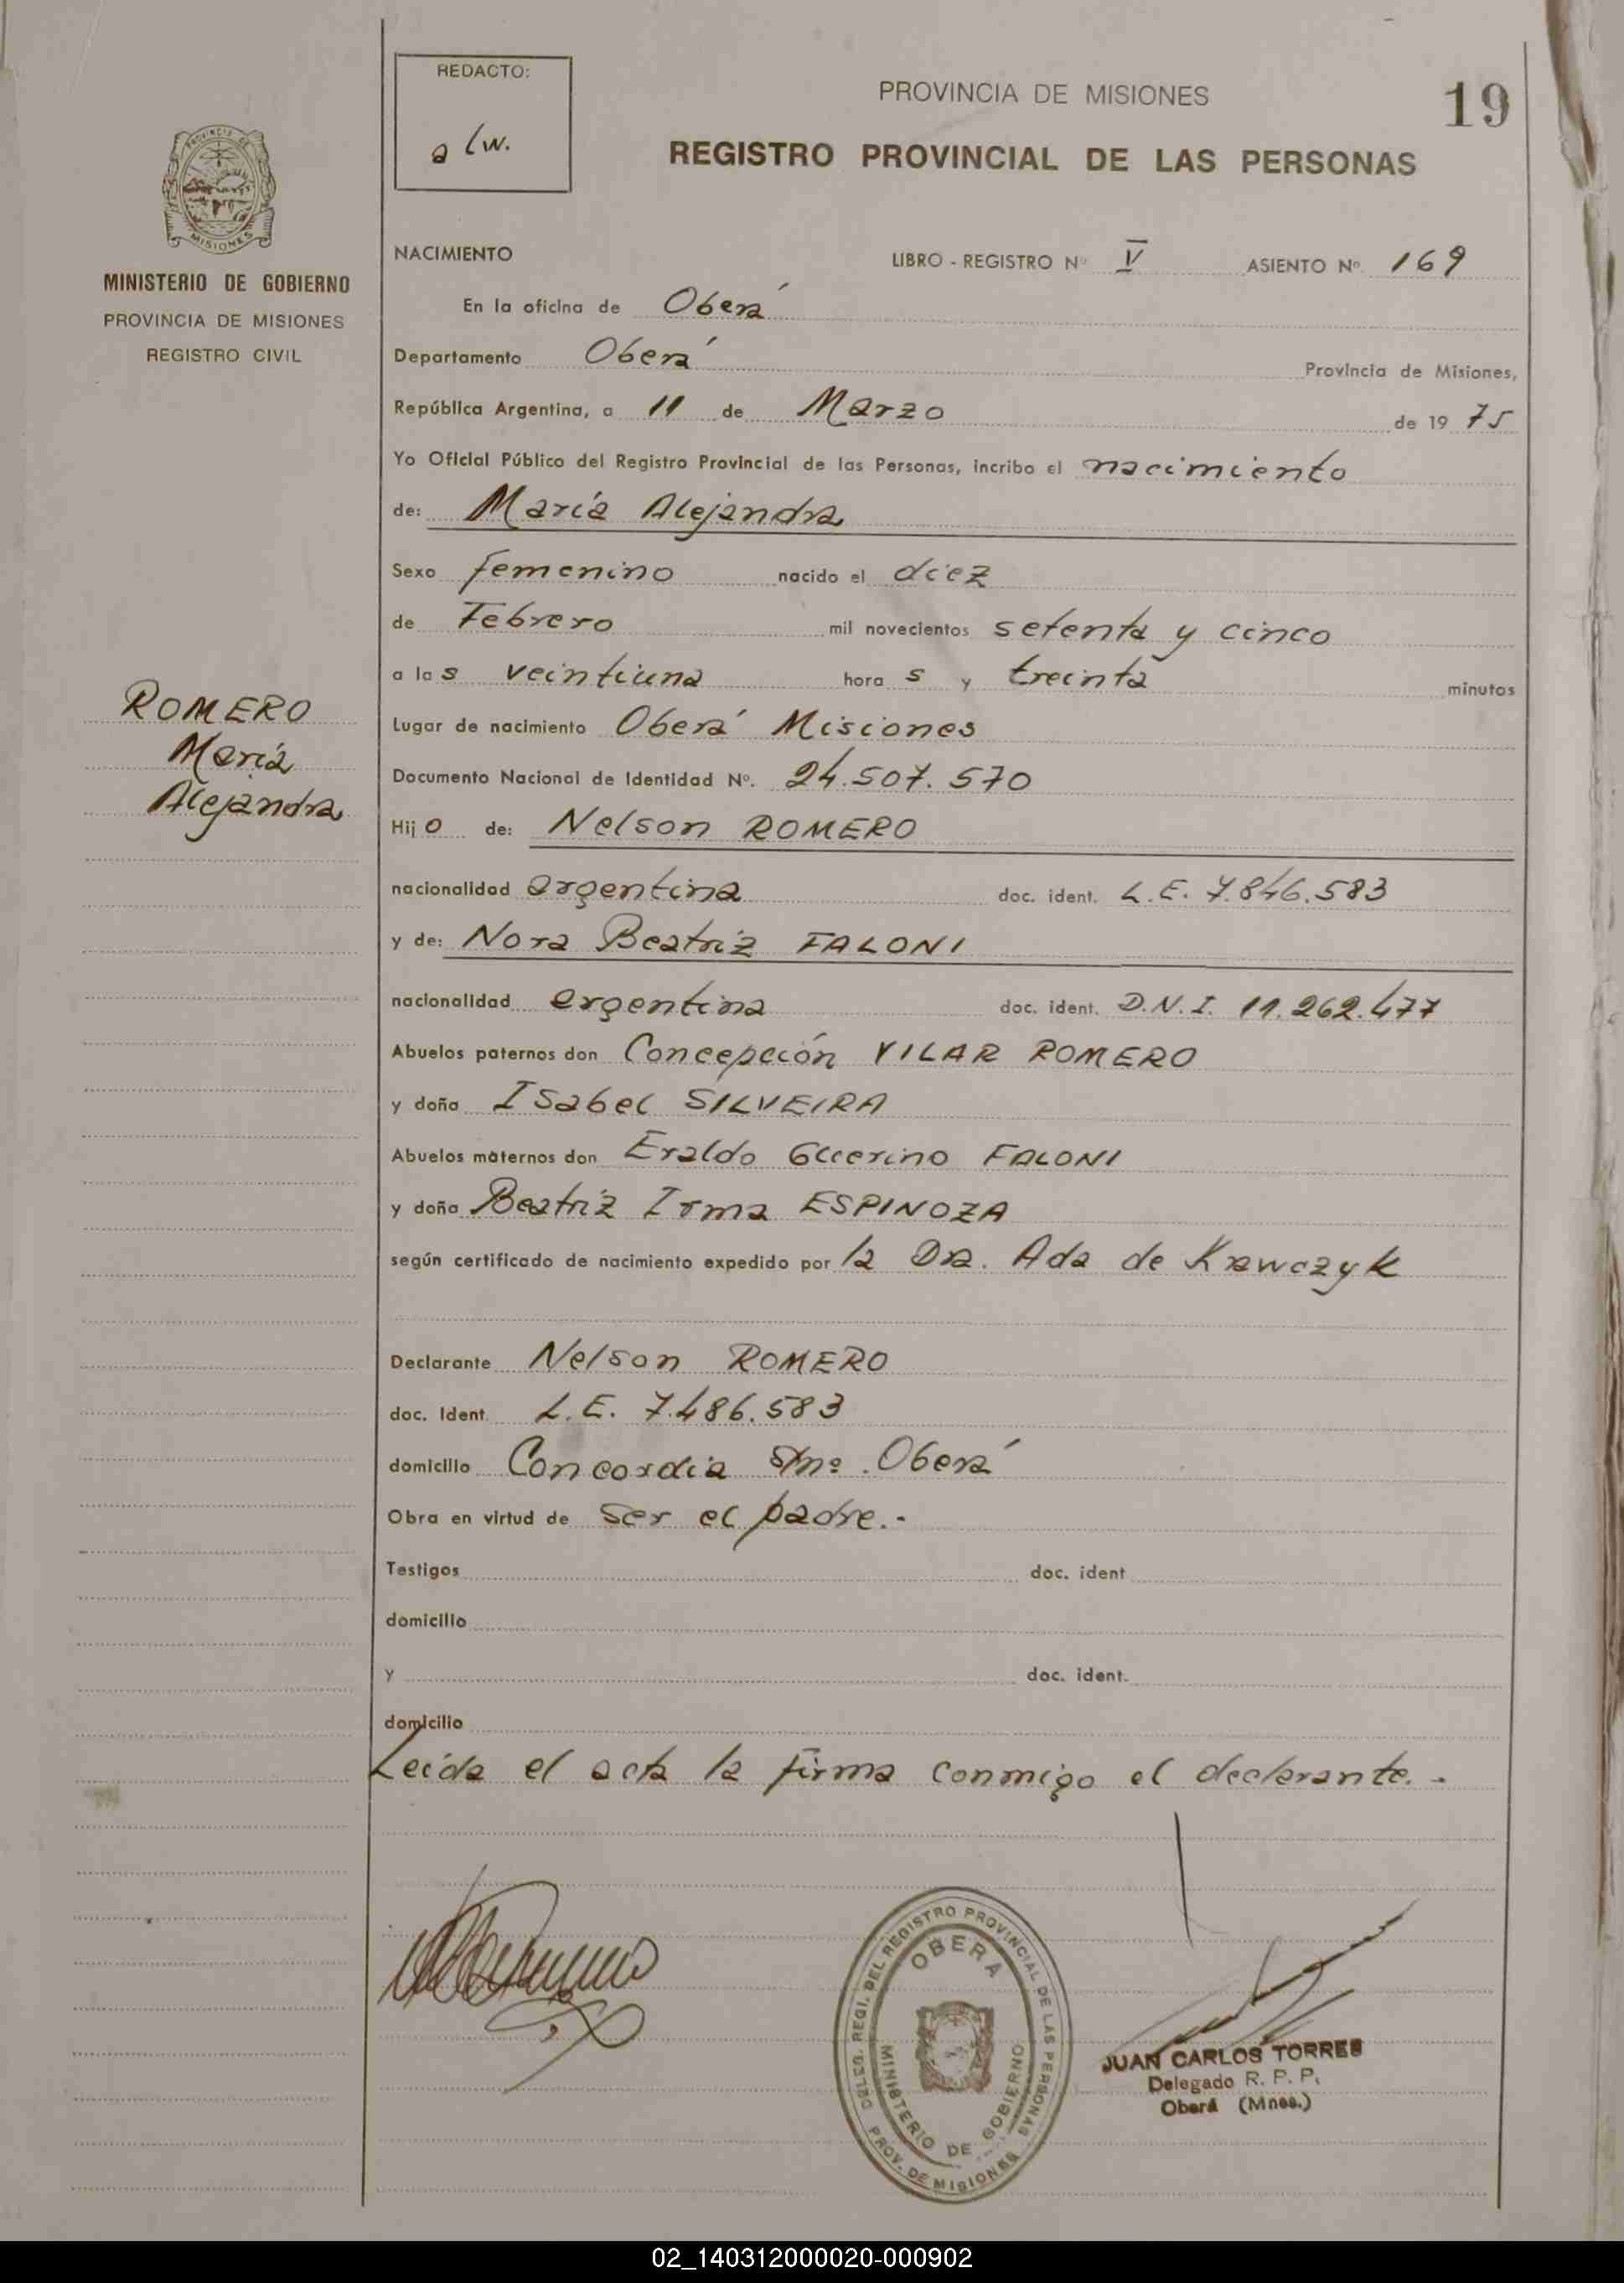 REDACTO:
PROVINCIA DE MISIONES
19
REGISTRO PROVINCIAL DE LAS PERSONAS
PROVINCIA DE
MISIONES
MINISTERIO DE GOBIERNO
PROVINCIA DE MISIONES
REGISTRO CIVIL
NACIMIENTO LIBRO - REGISTRO Nº V ASIENTO Nº 169
En la oficina de Oberá
Departamento Oberá Provincia de Misiones,
República Argentina, a 11 de Marzo de 1975
Yo Oficial Público del Registro Provincial de las Personas, incribo el nacimiento
de: María Alejandra
Sexo femenino nacido el diez
de Febrero mil novecientos setenta y cinco
a las veintiuna horas y treinta minutos
ROMERO
María
Alejandra
Lugar de nacimiento Oberá Misiones
Documento Nacional de Identidad Nº. 24.507.570
Hijo de: Nelson ROMERO
nacionalidad argentina doc. ident. L.E. 7.846.583
y de: Nora Beatriz FALONI
nacionalidad argentina doc. ident. D.N.I. 11.262.477
Abuelos paternos don Concepción VILAR ROMERO
y doña ISabel SILVEIRA
Abuelos maternos don Eraldo Guerino FALONI
y doña Beatriz Irma ESPINOZA
según certificado de nacimiento expedido por la Dra. Ada de Krawczyk
Declarante Nelson ROMERO
doc. Ident L.E. 7.486.583
domicilio Concordia s/nº. Oberá
Obra en virtud de ser el padre.-
Testigos doc. ident
domicilio
y doc. ident.
domicilio
Leída el acta la firma conmigo el declarante.-
DELEG. REGI. DEL REGISTRO PROVINCIAL DE LAS PERSONAS
OBERA
MINISTERIO DE GOBIERNO
PROV. DE MISIONES
JUAN CARLOS TORRES
Delegado R. P. P.
Oberá (Mnes.)
02_140312000020-000902